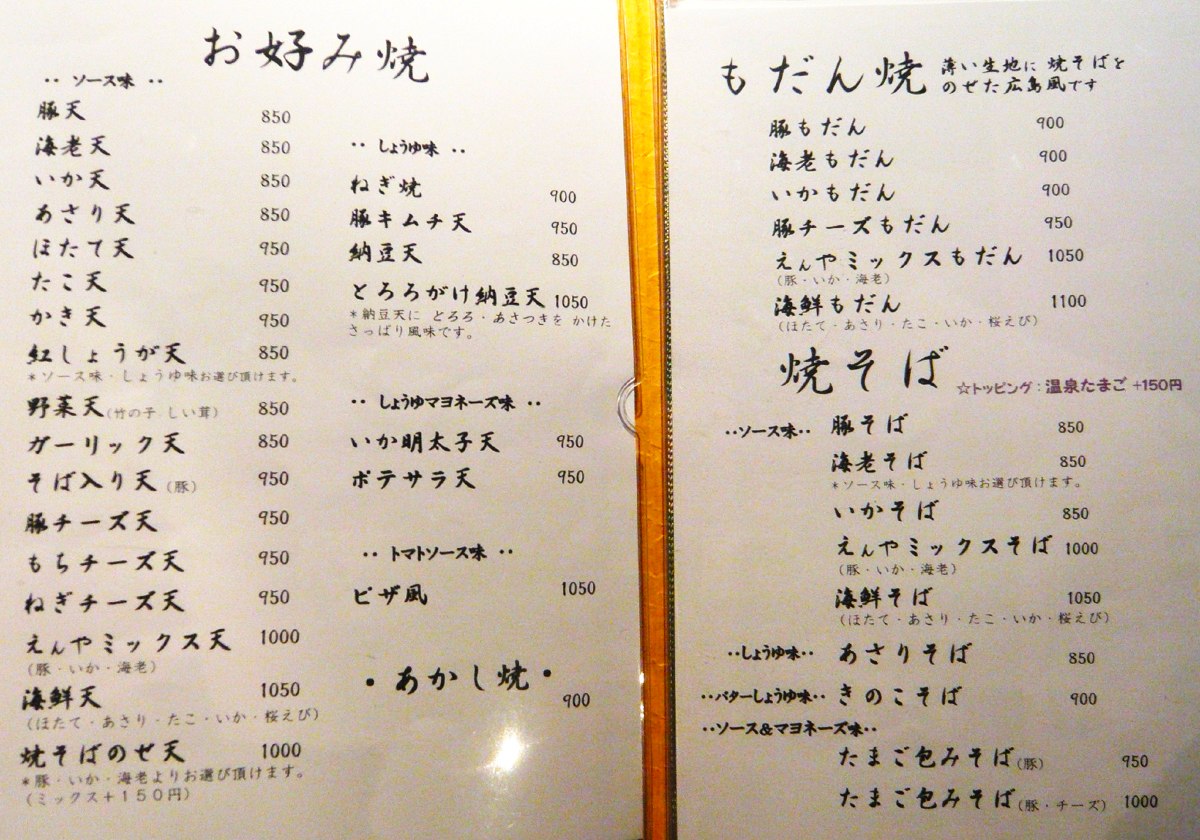 お好み焼
‥ ソース味 ‥
豚天 850
海老天 850
いか天 850
あさり天 850
ほたて天 950
たこ天 950
かき天 950
紅しょうが天 850
＊ソース味・しょうゆ味お選び頂けます。
野菜天(竹の子 しい茸) 850
ガーリック天 850
そば入り天(豚) 950
豚チーズ天 950
もちチーズ天 950
ねぎチーズ天 950
えんやミックス天 1000
(豚・いか・海老)
海鮮天 1050
(ほたて・あさり・たこ・いか・桜えび)
焼そばのせ天 1000
＊豚・いか・海老よりお選び頂けます。
(ミックス+150円)
‥ しょうゆ味 ‥
ねぎ焼 900
豚キムチ天 950
納豆天 850
とろろがけ納豆天 1050
＊納豆天に とろろ・あさつきを かけた
さっぱり風味です。
‥ しょうゆマヨネーズ味 ‥
いか明太子天 950
ポテサラ天 950
‥ トマトソース味 ‥
ピザ風 1050
・あかし焼・
900
もだん焼 薄い生地に 焼そばを
のせた広島風です
豚もだん 900
海老もだん 900
いかもだん 900
豚チーズもだん 950
えんやミックスもだん 1050
(豚・いか・海老)
海鮮もだん 1100
(ほたて・あさり・たこ・いか・桜えび)
焼そば ☆トッピング：温泉たまご +150円
‥ソース味‥ 豚そば 850
海老そば 850
＊ソース味・しょうゆ味お選び頂けます。
いかそば 850
えんやミックスそば 1000
(豚・いか・海老)
海鮮そば 1050
(ほたて・あさり・たこ・いか・桜えび)
‥しょうゆ味‥ あさりそば 850
‥バターしょうゆ味‥ きのこそば 900
‥ソース&マヨネーズ味‥
たまご包みそば(豚) 950
たまご包みそば(豚・チーズ) 1000